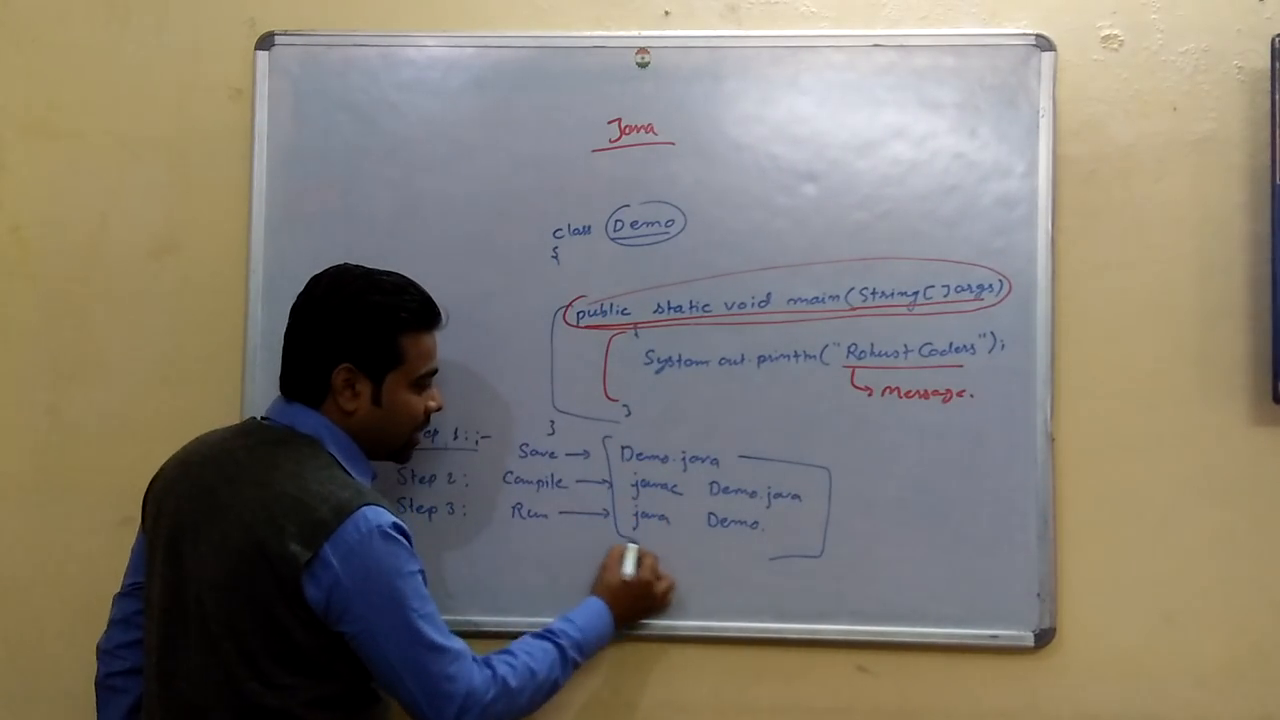 Java
class Demo
{
public static void main(String[]args)
{
System.out.println("Robust Coders");
Message.
}
}
ep 1:-
Save → Demo.java
Step 2: Compile → javac Demo.java
Step 3: Run → java Demo.